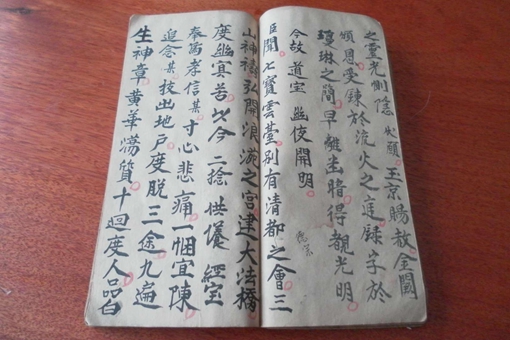 之靈光惻隱 伏願 玉京賜赦金闕
頒恩受錬於流火之庭録字於
瓊琳之簡早離幽暗得覩光明
今故道宝 幽伎開明
臣聞石寳雲臺別有清都之會三
山神禱弘開浪菀之宮建大法橋
度幽冥苦 今二捻供養 經宝
奉為孝信某寸心悲痛一悃宜陳
追念某技出地戶度脫三途九遍
生神章黃華蕩質十廻度人品白